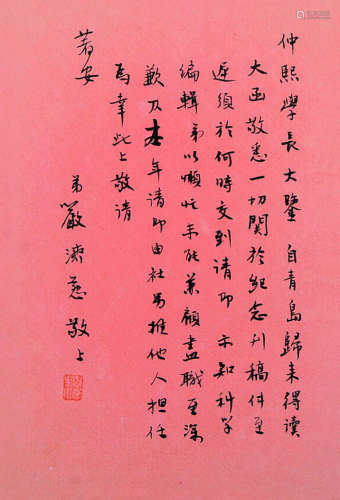 仲熙學長大鑒自青島歸來得讀
大函敬悉一切關於紀念刊稿件至
遲須於何時交到請即示知科学
編輯弟以懶忙未能兼顧盡職至深
歉仄本年請即由社另推他人担任
為幸此上敬請
著安
弟嚴濟慈敬上